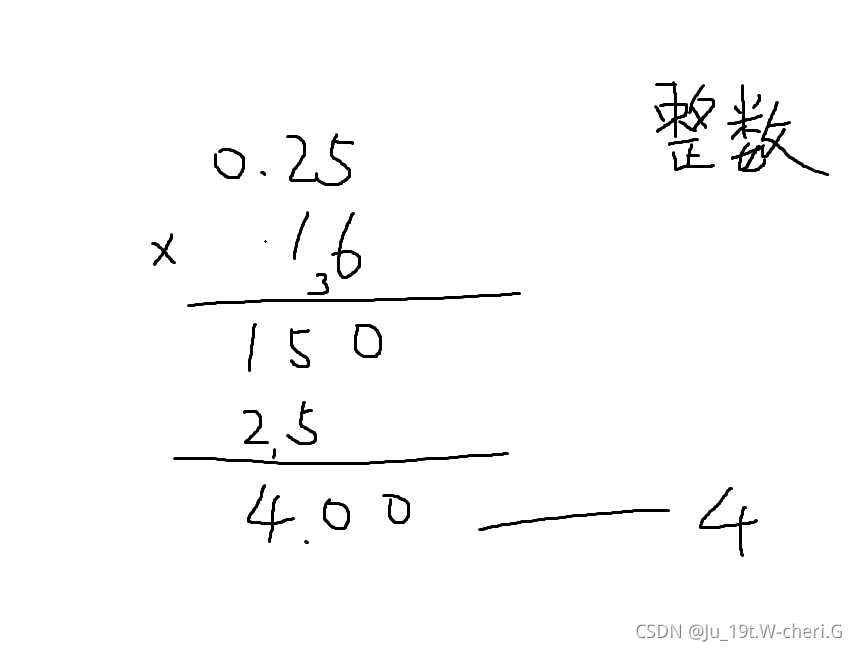 整数
0.25
× 16
3
150
25
1
4.00 — 4
CSDN @Ju_19t.W-cheri.G